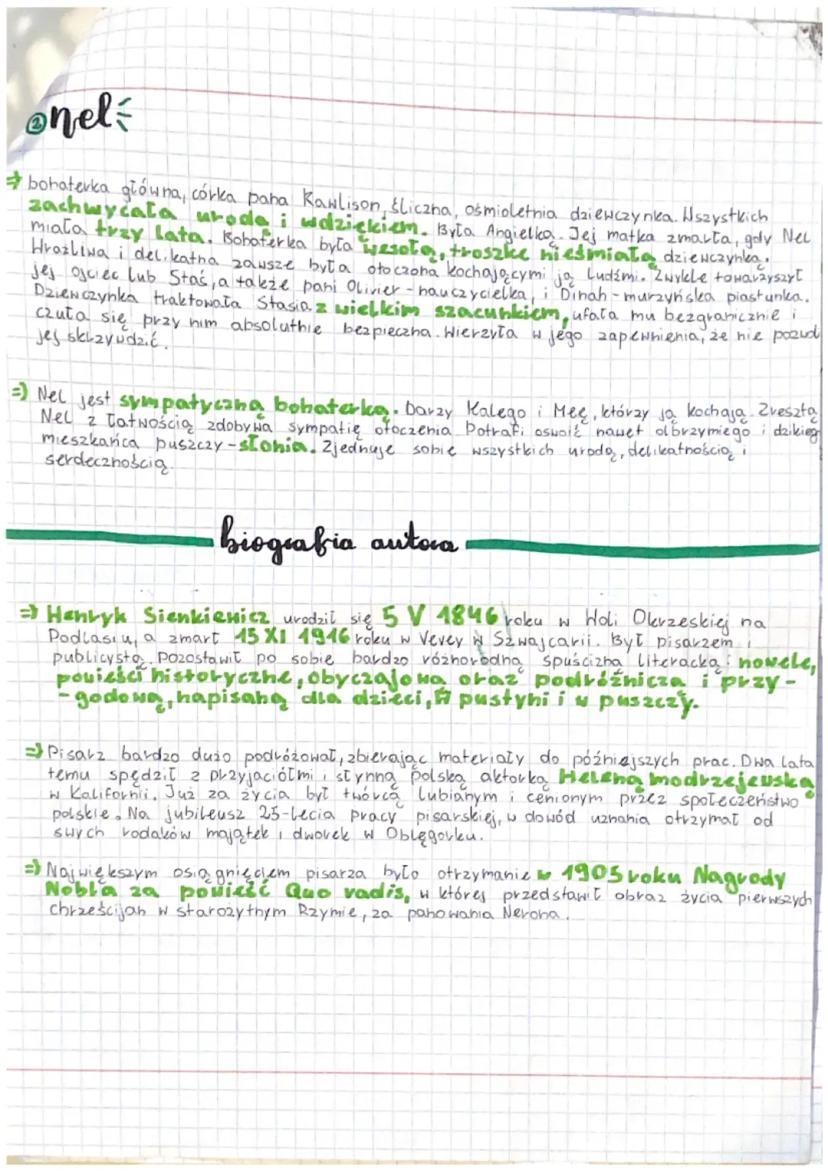 ② nel
→ bohaterka główna, córka pana Rawlison, śliczna, ośmioletnia dziewczynka. Wszystkich
zachwycała urodą i wdziękiem. Była Angielką. Jej matka zmarła, gdy Nel
miała trzy lata. Bohaterka była wesołą, troszkę nieśmiałą dziewczynką.
Wrażliwa i delikatna zawsze była otoczona kochającymi ją ludźmi. Zwykle towarzyszył
jej ojciec lub Staś, a także pani Olivier - nauczycielka, i Dinah - murzyńska piastunka.
Dziewczynka traktowała Stasia z wielkim szacunkiem, ufała mu bezgranicznie i
czuła się przy nim absolutnie bezpieczna. Wierzyła w jego zapewnienia, że nie pozwl
jej skrzywdzić.
⇒ Nel jest sympatyczną bohaterką. Darzy Kalego i Meę, którzy ją kochają. Zresztą
Nel z łatwością zdobywa sympatię otoczenia. Potrafi oswoić nawet olbrzymiego i dzikieg
mieszkańca puszczy - słonia. Zjednuje sobie wszystkich urodą, delikatnością i
serdecznością.
biografia autora
⇒ Henryk Sienkiewicz urodził się 5 V 1846 roku w Woli Okrzeskiej na
Podlasiu, a zmarł 15 XI 1916 roku w Vevey w Szwajcarii. Był pisarzem i
publicystą. Pozostawił po sobie bardzo różnorodną spuściznę literacką: nowele,
powieści historyczne, obyczajową oraz podróżniczą i przy-
-godową, napisaną dla dzieci, W pustyni i w puszczy.
⇒ Pisarz bardzo dużo podróżował, zbierając materiały do późniejszych prac. Dwa lata
temu spędził z przyjaciółmi i słynną polską aktorką Heleną modrzejewską
w Kalifornii. Już za życia był twórcą lubianym i cenionym przez społeczeństwo
polskie. Na jubileusz 25-lecia pracy pisarskiej, w dowód uznania otrzymał od
swych rodaków majątek i dworek w Oblęgorku.
⇒ Największym osiągnięciem pisarza było otrzymanie w 1905 roku Nagrody
Nobla za powieść Quo vadis, w której przedstawił obraz życia pierwszych
chrześcijan w starożytnym Rzymie, za panowania Nerona.